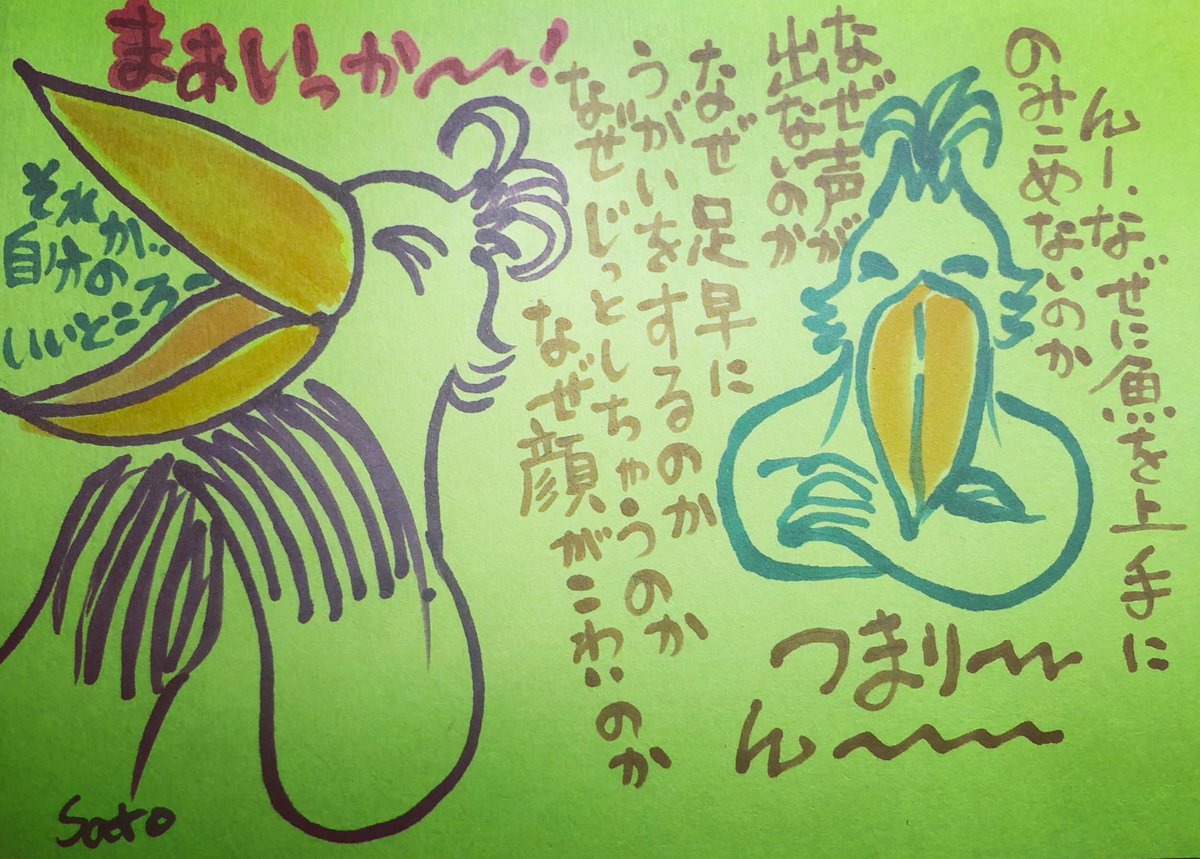 んー、なぜに魚を上手に
のみこめないのか
なぜ声が
出ないのか
なぜ足早に
うがいをするのか
なぜじっとしちゃうのか
なぜ顔がこわいのか
つまり〜
ん〜
まあいっか〜!
それが…
自分の
いいところー
Sato